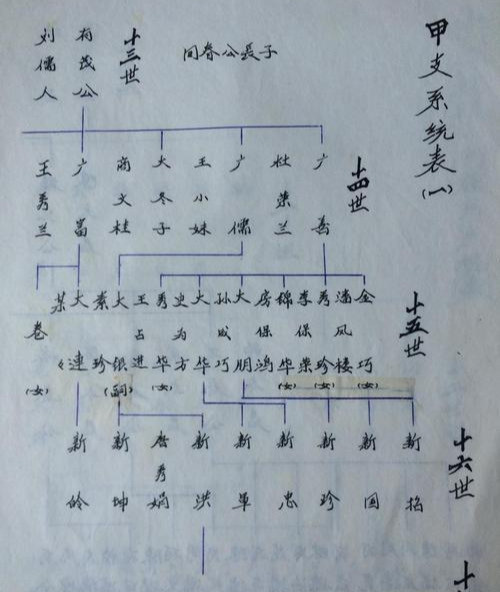 甲支系统表(一)
十三世
同春公長子
有茂公
刘儒人
十四世
广嘉
杜荣兰
广儒
王小妹
大冬子
商文桂
广富
王秀兰
十五世
金巧(女)
潘风楼
秀珍(女)
李保荣
锦华(女)
房保鸿
大朋
孙成巧
大华
史为方
秀华(女)
王占进
大银(嗣)
素珍
大連
某
卷(女)
十六世
新
新国
新珍
新忠
新草
新洪
唐秀娟
新坤
新岭
十